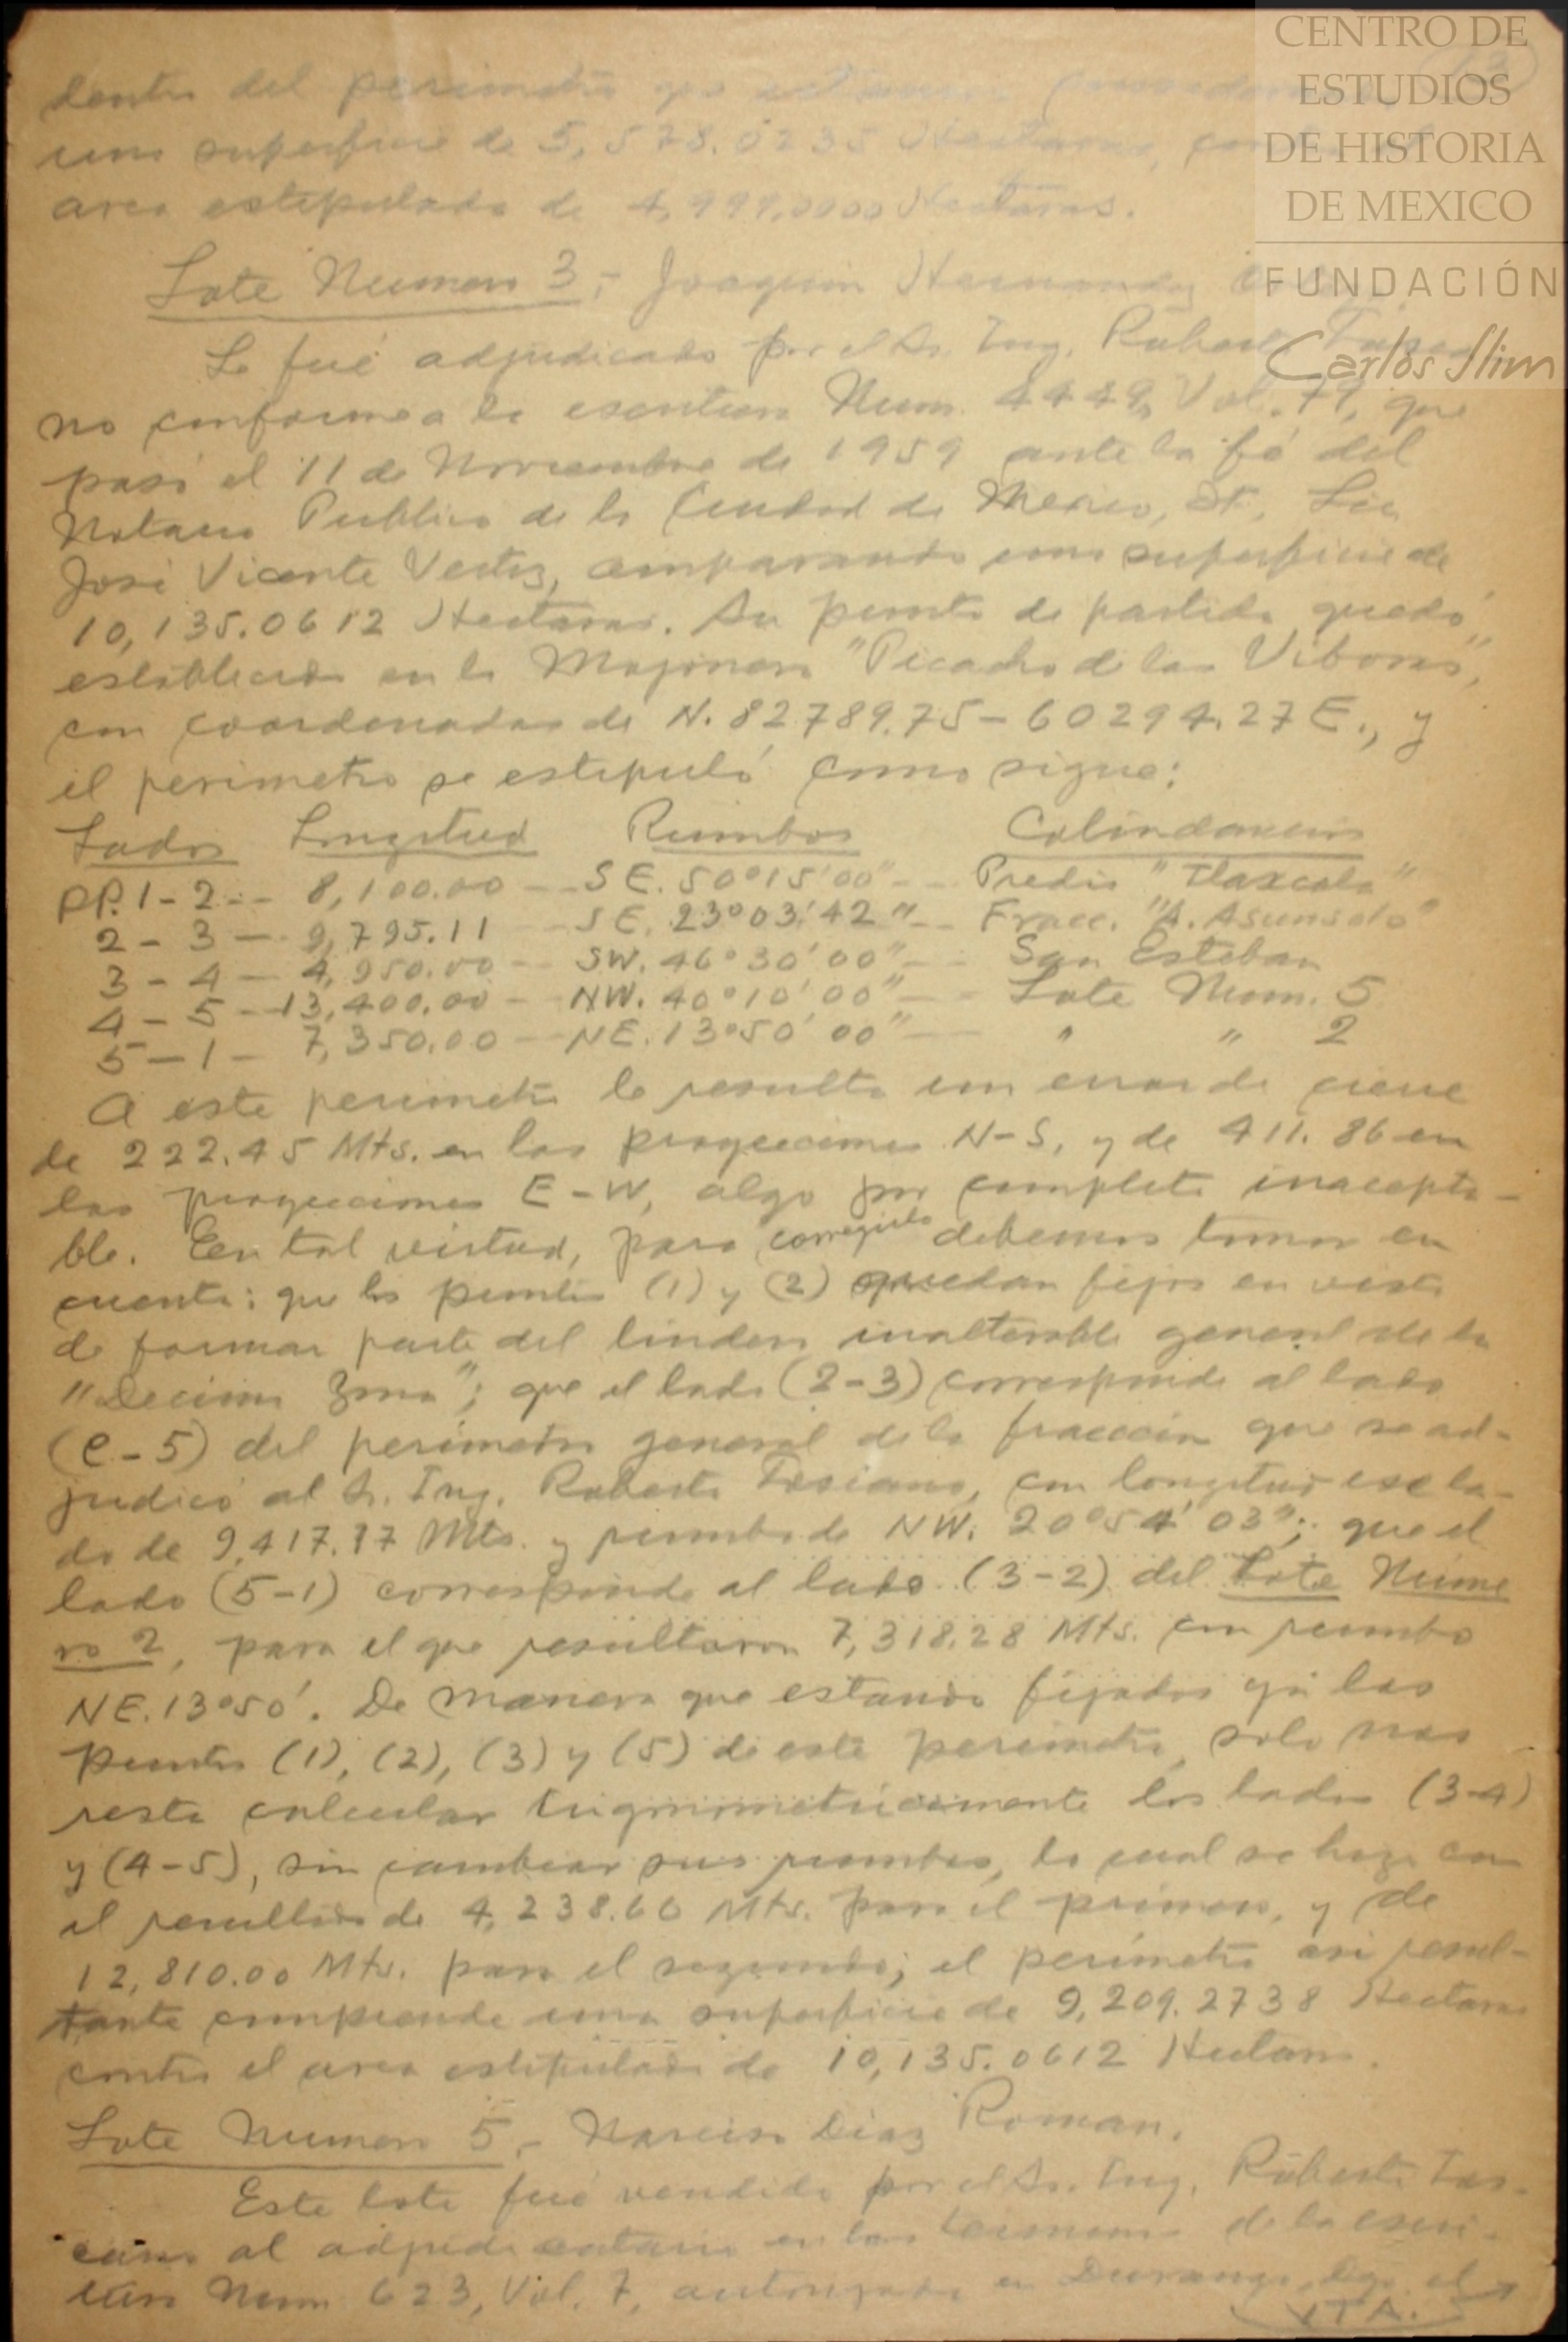 CENTRO DE
ESTUDIOS
DE HISTORIA
DE MEXICO
FUNDACIÓN
Carlos Slim
dentro del perimetro que
una superficie de 5,578.0235 Hectareas,
area estipulada de 4,999.0000 Hectareas.
Lote Numero 3,- Joaquin Hernandez
Le fué adjudicado por el Sr. Ing. Roberto
no conforme a la escritura Num. 4449, Vol. 79, que
pasó el 11 de Noviembre de 1959 ante la fé del
Notario Publico de la Ciudad de Mexico, D.F., Lic
José Vicente Vertiz, amparando una superficie de
10,135.0612 Hectareas. Su punto de partida quedó
establecido en la Mojonera "Picacho de las Viboras",
con coordenadas de N. 82789.75 - 60294.27 E., y
el perimetro se estipuló como sigue:
Lados Longitud Rumbos Colindancias
PP.1-2-- 8,100.00 -- SE. 50°15'00" -- Predio "Tlaxcala"
2-3 -- 9,795.11 -- SE. 23°03'42" -- Fracc. "A. Asunsolo"
3-4 -- 4,950.00 -- SW. 46°30'00" -- San Esteban
4-5 - 13,400.00 - NW. 40°10'00" -- Lote Num. 5
5-1 - 7,350.00 - NE. 13°50'00" -- " " 2
A este perimetro le resulta un error de cierre
de 222.45 Mts. en las proyecciones N-S, y de 411.86 en
las proyecciones E-W, algo por completo inacepta-
ble. En tal virtud, para corregirlo debemos tomar en
cuenta: que los puntos (1) y (2) quedan fijos en vista
de formar parte del lindero inalterable general de la
"Decima Zona"; que el lado (2-3) corresponde al lado
(e-5) del perimetro general de la fracción que se ad-
judicó al Sr. Ing. Roberto Toscano, con longitud ese la-
do de 9,417.97 Mts. y rumbo de NW. 20°54'03"; que el
lado (5-1) corresponde al lado (3-2) del Lote Nume
ro 2, para el que resultaron 7,318.28 Mts. con rumbo
NE. 13°50'. De manera que estando fijados ya los
puntos (1), (2), (3) y (5) de este perimetro, solo nos
resta calcular trigonometricamente los lados (3-4)
y (4-5), sin cambiar sus rumbos, lo cual se hizo con
el resultado de 4,238.60 Mts. para el primero, y de
12,810.00 Mts. para el segundo; el perimetro asi resul-
tante comprende una superficie de 9,209.2738 Hectareas
contra el area estipulada de 10,135.0612 Hectareas.
Lote Numero 5.- Narciso Diaz Roman.
Este lote fué vendido por el Sr. Ing. Roberto Tos-
cano al adjudicatario en los terminos de la escri-
tura Num 623, Vol. 7, autorizada en Durango, Dgo. el
VTA.